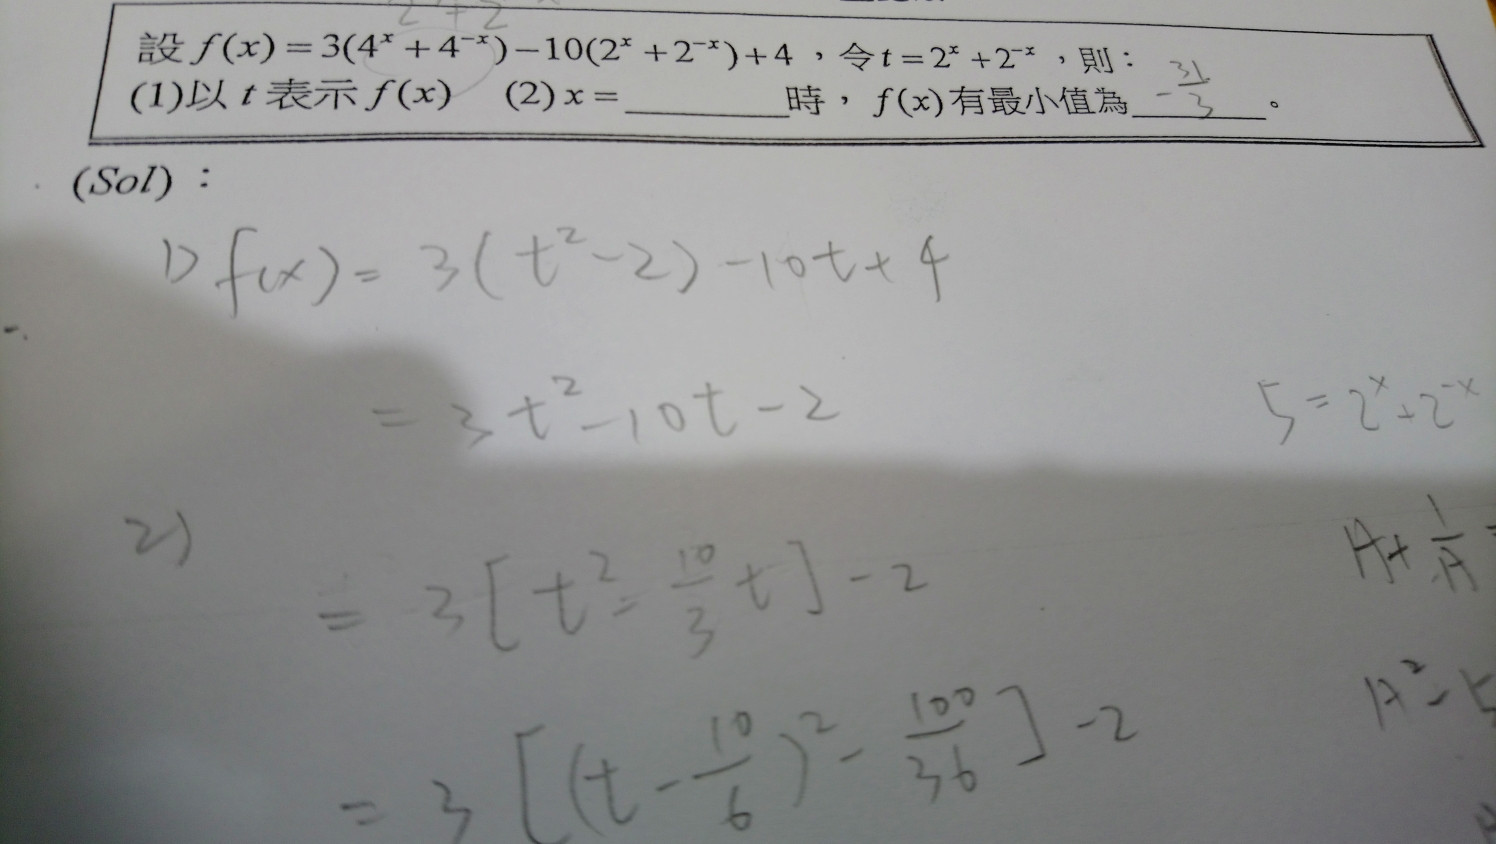 2 + 2
設 f(x) = 3(4ˣ + 4⁻ˣ) − 10(2ˣ + 2⁻ˣ) + 4 ，令 t = 2ˣ + 2⁻ˣ ，則：
(1)以 t 表示 f(x) (2) x = ________ 時， f(x) 有最小值為 -31/3 。
(Sol)：
1) f(x) = 3(t² - 2) - 10t + 4
= 3t² - 10t - 2
5 = 2ˣ + 2⁻ˣ
2)
= 3[t² - 10/3 t] - 2
A + 1/A =
= 3[(t - 10/6)² - 100/36] - 2
A² - 5